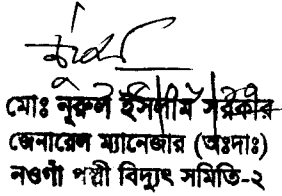 মোঃ নূরুল ইসলাম সরকার
জেনারেল ম্যানেজার (অঃদাঃ)
নওগাঁ পল্লী বিদ্যুৎ সমিতি-২